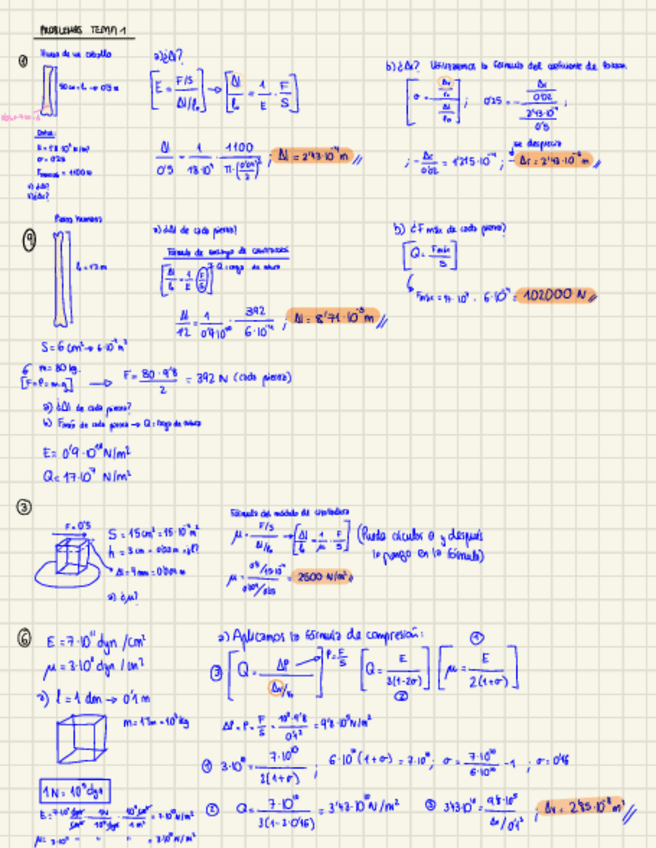 PROBLEMAS TEMA 1
① Hueso de un caballo
50 cm = l₀ → 0'5 m
Datos:
E = 18·10⁹ N/m²
σ = 0'25
F = 1100 N
a) ¿Δl?
b) ¿Δr?
a) ¿Δl?
[E = F/S / Δl/l₀] → [Δl/l₀ = 1/E · F/S]
Δl/0'5 = 1/18·10⁹ · 1100/π·(0'02/2)² ; Δl = 2'43·10⁻⁴ m
b) ¿Δr? Utilizamos la fórmula del coeficiente de Poisson
0'25 = - Δr/0'02 / 2'43·10⁻⁴/0'5 ;
se desprecia
; -Δr/0'02 = 1'215·10⁻⁴ ; Δr = 2'43·10⁻⁶ m
⑨ Pierna humana
l₀ = 1'2 m
S = 6 cm² → 6·10⁻⁴ m²
m = 80 kg
[F = P = m·g] → F = 80·9'8/2 = 392 N (cada pierna)
a) ¿Δl de cada pierna?
b) Fmáx de cada pierna → Q = carga de rotura
E = 0'9·10¹⁰ N/m²
Q = 17·10⁷ N/m²
a) ¿Δl de cada pierna?
[Δl/l₀ = 1/E · F/S]
Δl/1'2 = 1/0'9·10¹⁰ · 392/6·10⁻⁴ ; Δl = 8'71·10⁻⁵ m
b) ¿F máx de cada pierna?
[Q = Fmáx/S]
Fmáx = 17·10⁷ · 6·10⁻⁴ = 102000 N
③
F = 0'5
S = 15 cm² = 15·10⁻⁴ m²
h = 3 cm = 0'03 m
Δl = 4 mm = 0'004 m
a) ¿μ?
Fórmula del módulo de cizalladura
μ = F/S / Δl/l₀ → [Δl/l₀ = 1/μ · F/S] (Puedo calcular θ y después
lo pongo en la fórmula)
= 2500 N/m²
⑥ E = 7·10¹¹ dyn/cm²
μ = 3·10¹¹ dyn/cm²
a) l = 1 dm → 0'1 m
m = 1 Tm = 10³ kg
1N = 10⁵ dyn
a) Aplicamos la fórmula de compresión:
③ [Q = ΔP / Δv/v₀] P = F/S [Q = E/3(1-2σ)] ② [μ = E/2(1+σ)] ①
ΔP = P = F/S = 10³·9'8/0'1² = 9'8·10⁵ N/m²
① 3·10¹⁰ = 7·10¹⁰/2(1+σ) ; 6·10¹⁰(1+σ) = 7·10¹⁰ ; σ = 7·10¹⁰/6·10¹⁰ - 1 ; σ = 0'16
② Q = 7·10¹⁰/3(1-2·0'16) = 3'43·10¹⁰ N/m² ③ 3'43·10¹⁰ = 9'8·10⁵ / Δv/0'1³ ; Δv = 2'85·10⁻⁸ m³